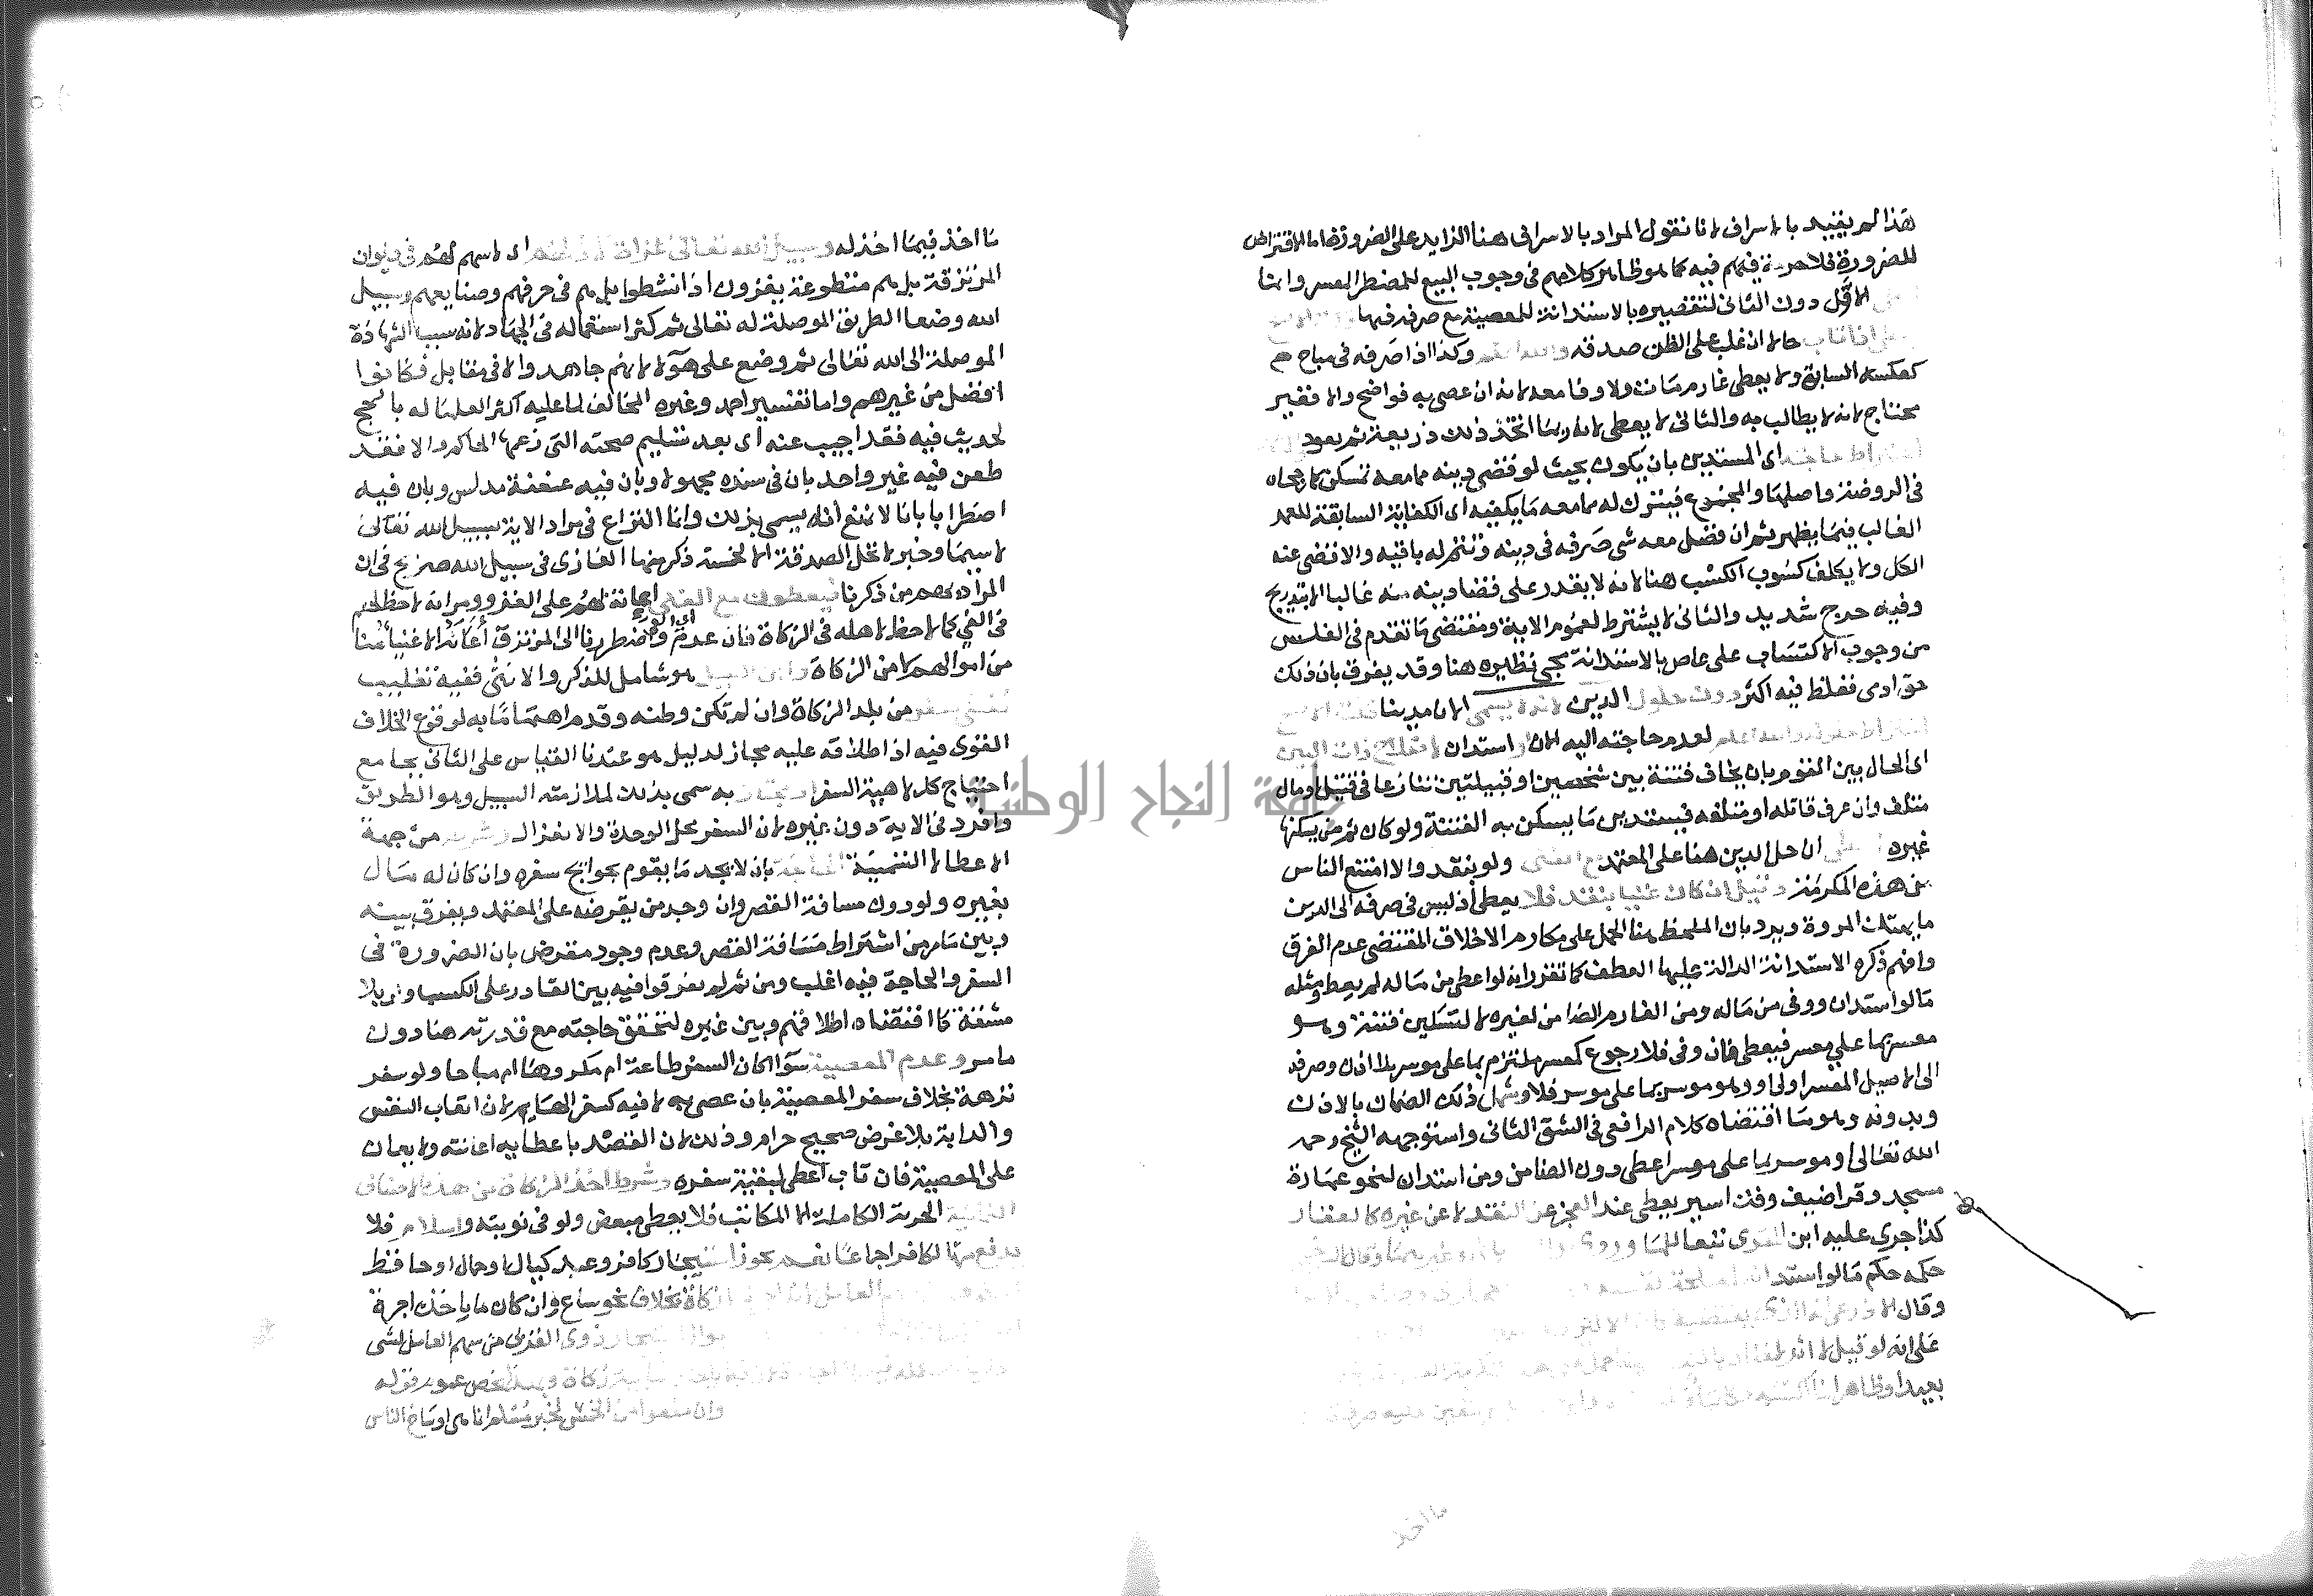 هذا لم يقيد بالاسراف لانا نقول المراد بالاسراف هنا الزايد على الضرورة اما الاقتراض
للضرورة فلا حرمة فيه كما هو ظاهر كلامهم في وجوب البيع للمضطر المعسر وانما
الاول دون الثاني لتقصيره بالاستدانة للمعصية مع صرفه فيها
اذا تاب حالا ان غلب على الظن صدقه وكذا اذا صرفه في مباح
كعكسه السابق ولا يعطى غارم مات ولا وفا معه لانه ان عصى به فواضح والا فغير
محتاج لانه لا يطالب به والثاني لا يعطى لانه ربما اتخذ ذلك ذريعة ثم يعود
حاجته اى المستدين بان يكون بحيث لو قضى دينه مما معه تمسكن كما رجحاه
في الروضة واصلها والمجموع فيترك له مما معه ما يكفيه اى الكفاية السابقة للعمر
الغالب فيما يظهر ثم ان فضل معه شى صرفه في دينه وتمم له باقيه والا قضى عنه
الكل ولا يكلف كسوب الكسب هنا لانه لا يقدر على قضا دينه منه غالبا الا بتدريج
وفيه حرج شديد والثاني لا يشترط لعموم الاية ومقتضى ما تقدم في الفلس
من وجوب الاكتساب على عاص بالاستدانة مجى نظيره هنا وقد يفرق بان ذلك
حق ادمى فغلظ فيه اكثر دون حلول الدين لانه يسمى الان مدينا قلت الاصح
اشتراط حلوله والله اعلم لعدم حاجته اليه الان او استدان لاصلاح ذات البين
اى الحال بين القوم بان يخاف فتنة بين شخصين او قبيلتين تنازعا في قتيل او مال
متلف وان عرف قاتله او متلفه فيستدين ما يسكن به الفتنة ولو كان ثم من يسكنها
غيره ان حل الدين هنا على المعتمد مع الغنى ولو بنقد والا امتنع الناس
من هذه المكرمة وقيل ان كان غنيا بنقد فلا يعطى اذ ليس في صرفه الى الدين
ما يهتك المروة ويرد بان الملحظ هنا الحمل على مكارم الاخلاق المقتضى عدم الفرق
وافهم ذكره الاستدانة الدالة عليها العطف كما تقرر انه لو اعطى من ماله لم يعط ومثله
ما لو استدان ووفى من ماله ومن الغارم الضامن لغيره لا لتسكين فتنة وهو
معسر بما على معسر فيعطى فان وفى فلا رجوع كمعسر ملتزم بما على موسر بلا اذن وصرفه
الى الاصيل المعسر اولى او وهو موسر بما على موسر فلا وشمل ذلك الضمان بالاذن
وبدونه وهو ما اقتضاه كلام الرافعى في الشق الثاني واستوجهه الشيخ رحمه
الله تعالى او موسر بما على موسر اعطى دون الضامن ومن استدان لنحو عمارة
مسجد وقرا ضيف وفك اسير يعطى عند العجز عن النقد لا عن غيره كالعقار
كذا جرى عليه ابن المقرى تبعا
حكمه حكم ما لو استدان لمصلحة نفسه
وقال الاذرعى
على انه لو قيل لا اثر
بعيدا وظاهر
ما اخذ
ما اخذ فيما اخذ له وسبيل الله تعالى غزاة لا فى لهم اى لا سهم لهم في ديوان
المرتزقة بل هم متطوعة يغزون اذا نشطوا بل هم في حرفهم وصنايعهم وسبيل
الله وضعا الطريق الموصلة له تعالى ثم كثر استعماله في الجهاد لانه سبب الشهادة
الموصلة الى الله تعالى ثم وضع على هولاء لانهم جاهدوا لا في مقابل فكانوا
افضل من غيرهم واما تفسير احمد وغيره المخالف لما عليه اكثر العلما له بالحج
لحديث فيه فقد اجيب عنه اى بعد تسليم صحته التى زعمها الحاكم والا فقد
طعن فيه غير واحد بان في سنده مجهولا وبان فيه عنعنة مدلس وبان فيه
اضطرابا بانا لا نمنع انه يسمى بذلك وانما النزاع في مراد الاية بسبيل الله تعالى
لا سيما وخبر لا تحل الصدقة الا لخمسة ذكر منها الغازى في سبيل الله صريح في ان
المراد بهم من ذكرنا فيعطون مع الغنى اعانة لهم على الغزو ومر انه لا حظ لهم
في الفى كما لا حظ لاهله في الزكاة فان عدم واضطررنا الى المرتزق اعانه الاغنياء منا
من اموالهم لا من الزكاة وابن السبيل هو شامل للذكر والانثى ففيه تغليب
منشى سفر من بلد الزكاة وان لم تكن وطنه وقدم اهتماما به لوقوع الخلاف
القوى فيه اذ اطلاقه عليه مجاز لدليل هو عندنا القياس على الثاني بجامع
احتياج كل لاهبة السفر او مجتاز به سمى بذلك لملازمته السبيل وهو الطريق
وافرد في الاية دون غيره لان السفر محل الوحدة والانعزال وشرطه من جهة
الاعطا لا التسمية الحاجة بان لا يجد ما يقوم بحوايج سفره وان كان له مال
بغيره ولو دون مسافة القصر وان وجد من يقرضه على المعتمد ويفرق بينه
وبين ما مر من اشتراط مسافة القصر وعدم وجود مقرض بان الضرورة في
السفر والحاجة فيه اغلب ومن ثم لم يفرقوا فيه بين القادر على الكسب ولو بلا
مشقة كما اقتضاه اطلاقهم وبين غيره لتحقق حاجته مع قدرته هنا دون
ما مر وعدم المعصية سوا اكان السفر طاعة ام مكروها ام مباحا ولو سفر
نزهة بخلاف سفر المعصية بان عصى به لا فيه كسفر الهايم لان اتعاب النفس
والدابة بلا غرض صحيح حرام وذلك لان القصد باعطايه اعانته ولا يعان
على المعصية فان تاب اعطى لبقية سفره وشرط اخذ الزكاة من هذه الاصناف
الثمانية الحرية الكاملة الا المكاتب فلا يعطى مبعض ولو في نوبته واسلام فلا
يدفع منها لكافر اجماعا نعم يجوز استيجار كافر وعبد كيال او حمال او حافظ
العامل بخلاف نحو ساع وان كان ما ياخذه اجرة
ذوى القربى من سهم العامل لشى
زكاة وبهذا يخص عموم قوله
وان منعوا من الخمس لخبر مسلم انما هى اوساخ الناس
جامعة النجاح الوطنية